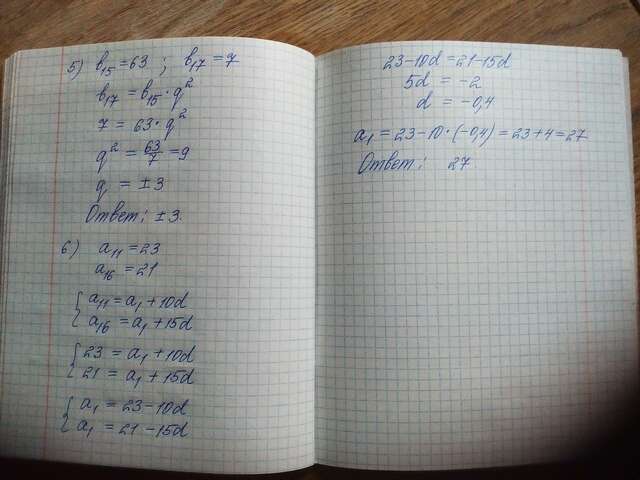 5) b₁₅ = 63 ; b₁₇ = 7
b₁₇ = b₁₅ · q²
7 = 63 · q²
q² = 63/7 = 9
q = ±3
Ответ: ±3.
6) a₁₁ = 23
a₁₆ = 21
{ a₁₁ = a₁ + 10d
a₁₆ = a₁ + 15d
{ 23 = a₁ + 10d
21 = a₁ + 15d
{ a₁ = 23 – 10d
a₁ = 21 – 15d
23 – 10d = 21 – 15d
5d = –2
d = –0,4
a₁ = 23 – 10 · (–0,4) = 23 + 4 = 27
Ответ: 27